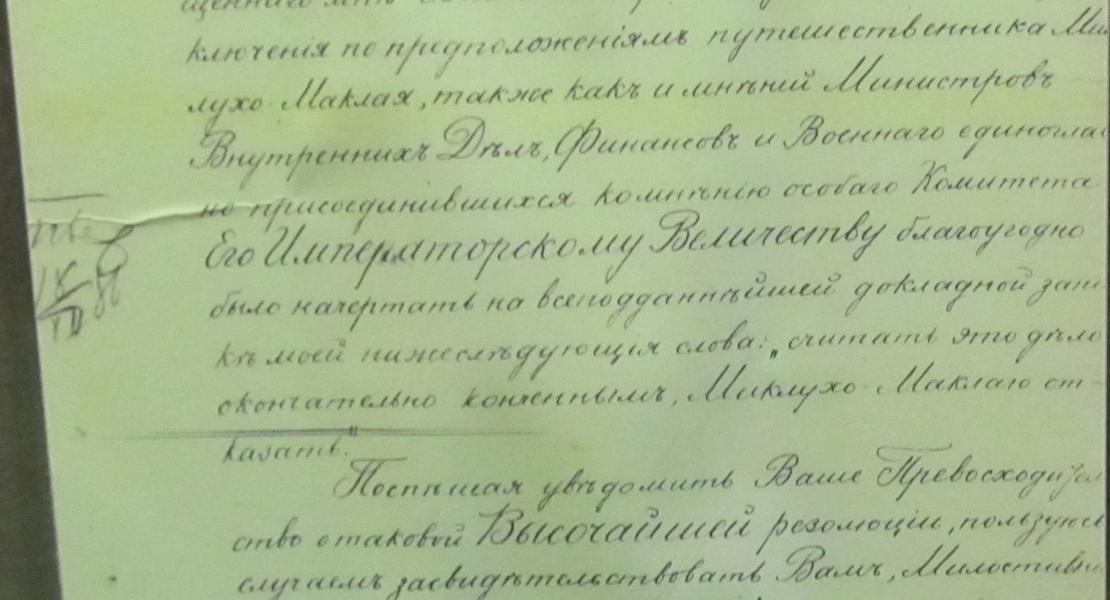 щеннаго мнѣ
ключенія по предположеніямъ путешественника Ми
лухо-Маклая, также какъ и мнѣній Министровъ
Внутреннихъ Дѣлъ, Финансовъ и Военнаго единоглас
но присоединившихся ко мнѣнію особаго Комитета
Его Императорскому Величеству благоугодно
было начертать на всеподданнѣйшей докладной запи
кѣ моей нижеслѣдующія слова: „считать это дѣло
окончательно конченнымъ, Миклухо-Маклаю от-
казать."
Поспѣшая увѣдомить Ваше Превосходител
ство о таковой Высочайшей резолюціи, пользуюсь
случаемъ засвидѣтельствовать Вамъ, Милостивы